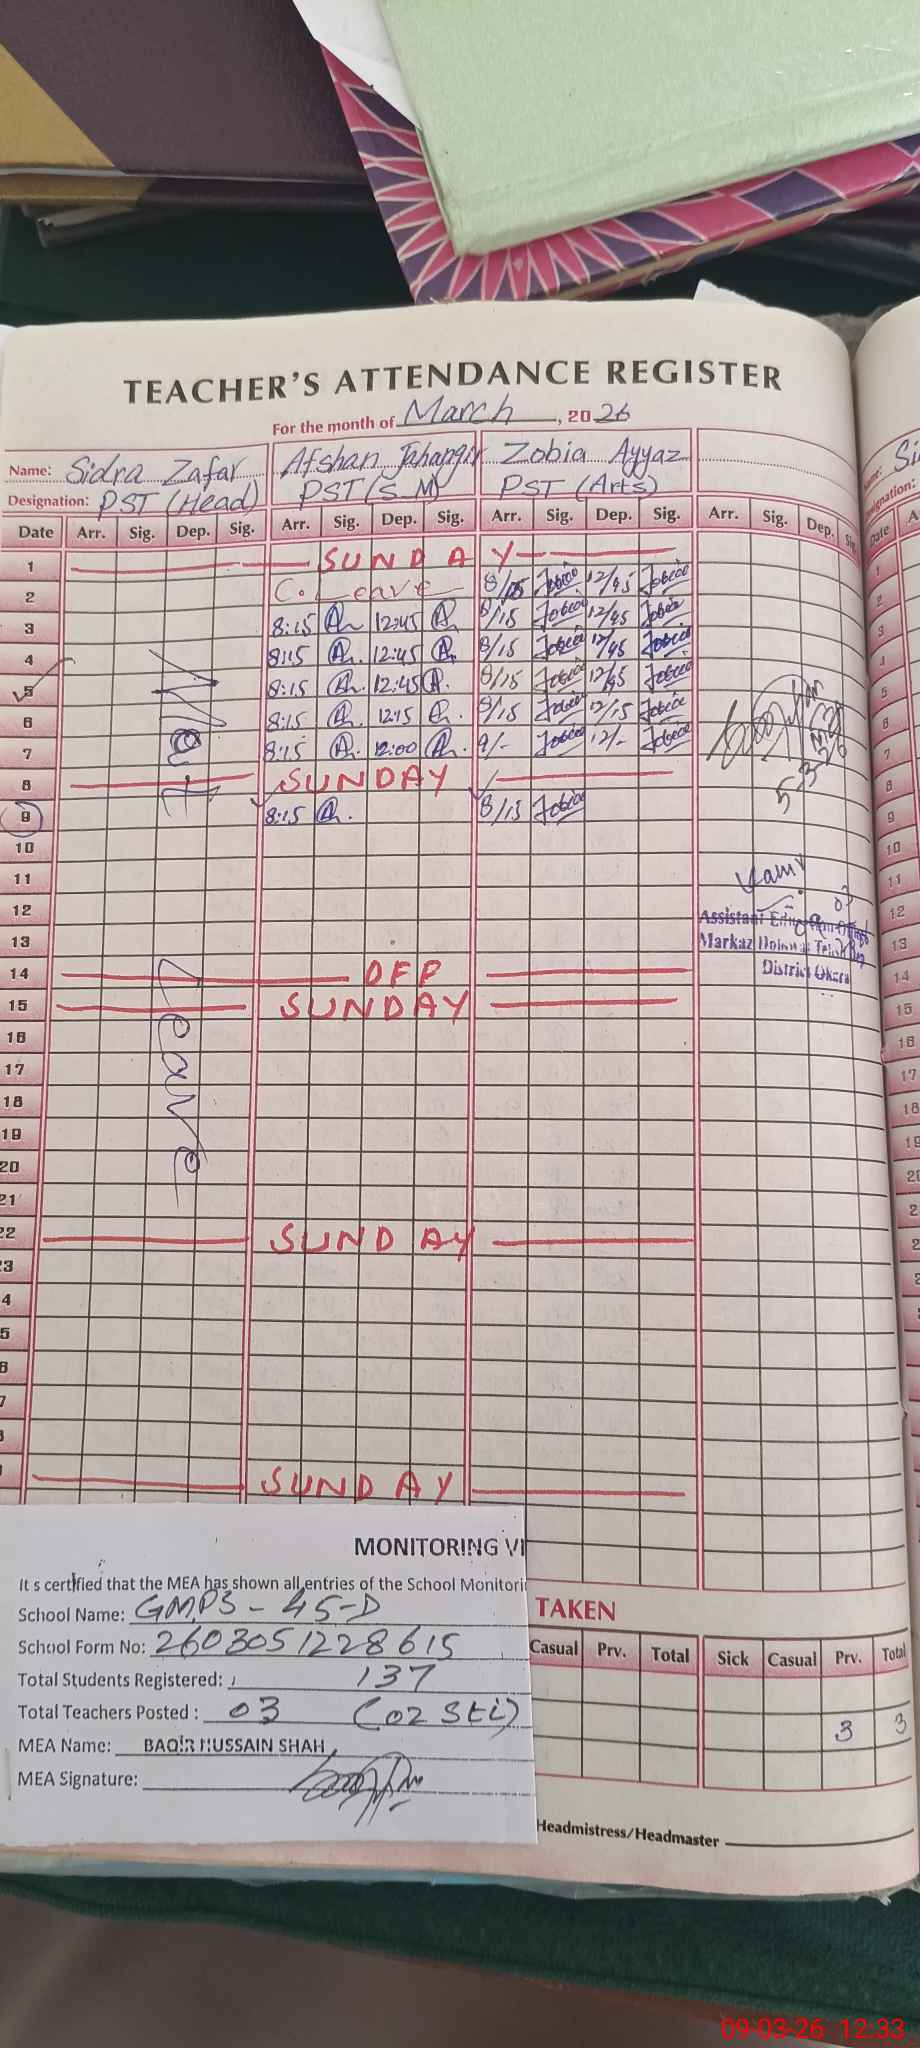 TEACHER'S ATTENDANCE REGISTER
For the month of March, 2026
Name: Sidra Zafar Afshan Jahangir Zobia Ayyaz
Designation: PST (Head) PST (S-M) PST (Arts)
Date Arr. Sig. Dep. Sig. Arr. Sig. Dep. Sig. Arr. Sig. Dep. Sig. Arr. Sig. Dep. Sig.
1 SUNDAY
2 C. Leave 8/15 Zobia 12/45 Zobia
3 8:15 12:45 8/15 Zobia 12/45 Zobia
4 8:15 12:45 8/15 Zobia 12/45 Zobia
5 8:15 12:45 8/15 Zobia 12/45 Zobia
6 8:15 12:15 8/15 Zobia 12/15 Zobia
7 8:15 12:00 9/- Zobia 12/- Zobia
8 SUNDAY
9 8:15 8/15 Zobia
10
11
12
13
14 OFF
15 SUNDAY
16
17
18
19
20
21
22 SUNDAY
23
4
5
6
7
SUNDAY
Leave
5-3-26
Assistant
Markaz
District Okara
MONITORING VI
It s certified that the MEA has shown all entries of the School Monitori
School Name: GMPS - 45-D
School Form No: 2603051228615
Total Students Registered: 137
Total Teachers Posted : 03 (02 STI)
MEA Name: BAQIR HUSSAIN SHAH
MEA Signature:
TAKEN
Casual Prv. Total Sick Casual Prv. Total
3 3
Headmistress/Headmaster
09-03-26 12:33